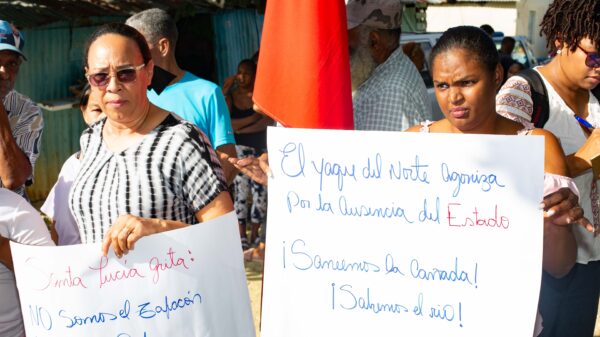 Santa Lucía grita:
NO Somos el Zafacón
El Yaque del Norte Agoniza
Por la Ausencia del Estado
¡Saneemos la Cañada!
¡Salvemos el río!